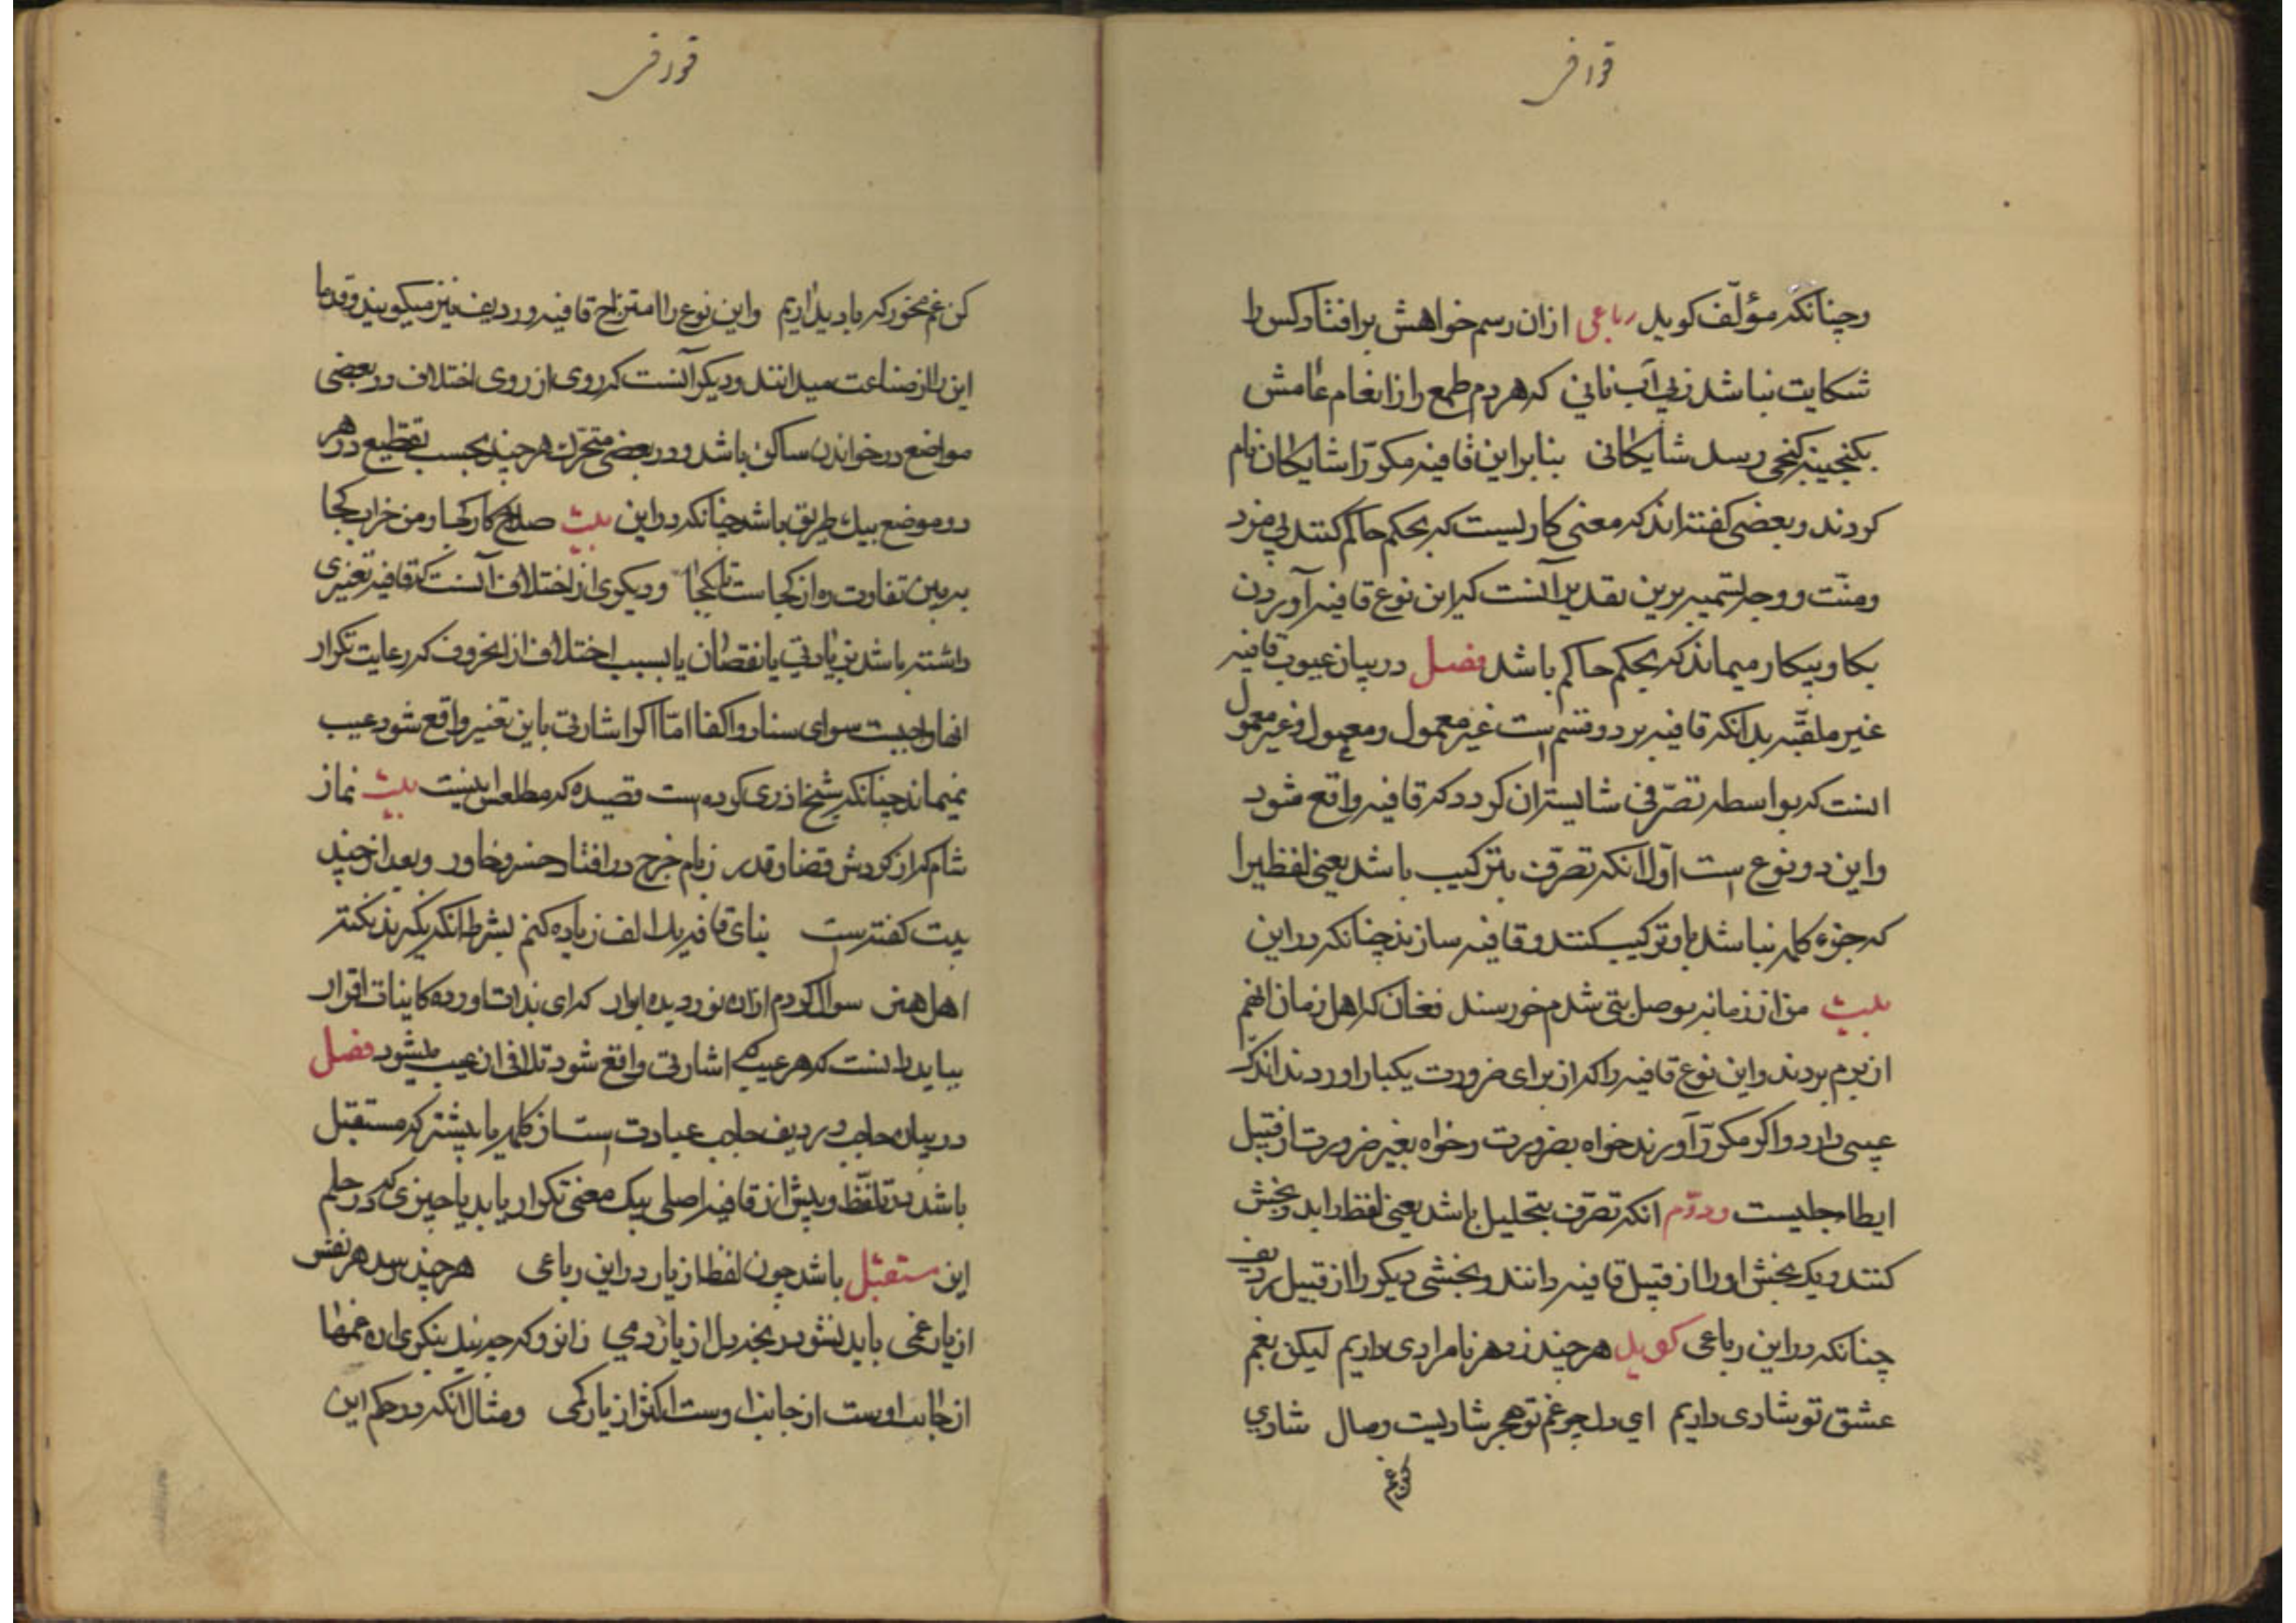 قوافی
وچنانکه مؤلّف کوید رباعی ازان رسم خواهش برافتاد کس را
شکایت نباشد زبی آب نانی که هردم طمع را زانعام عامش
بکنجینه کنجی رسد شایکانی بنابراین قافیه مکرّر را شایکان نام
کردند وبعضی کفته اند که معنی کاریست که بحکم حاکم کنند بی مزد
ومنّت ووجه تسمیه برین تقدیر آنست که این نوع قافیه آوردن
بکار وبیکار میماند که بحکم حاکم باشد فصل در بیان عیوب قافیه
غیر ملقّبه بدانکه قافیه بر دو قسم است غیر معمول ومعمول وغیر معمول
انست که بواسطه تصرّفی شایسته ان کردد که قافیه واقع شود
واین دو نوع است اوّل انکه تصرّف بترکیب باشد یعنی لفظیرا
که جزء کلمه نباشد باو ترکیب کنند وقافیه سازند چنانکه دراین
بیت من از زمانه بوصل بتی شدم خورسند فغان که اهل زمان انهم
از برم بردند واین نوع قافیه را که از برای ضرورت یکبار اوردند اندک
عیبی دارد واکر مکرّر آورند خواه بضرورت وخواه بغیر ضرورت از قبیل
ایطاء جلیست ودوّم انکه تصرّف بتحلیل باشد یعنی لفظ را بدو بخش
کنند ویک بخش اورا از قبیل قافیه دانند وبخشی دیکر را از قبیل ردیف
چنانکه دراین رباعی کوید هرچند زدهر نامرادی داریم لیکن بغم
عشق تو شادی داریم ای دل چو غم تو هجر شادیست وصال شادی
کن غم
قوافی
کن غم مخور که یاد یداریم واین نوع را امتزاج قافیه وردیف نیز میکویند وقدما
این را از صناعت میدانند ودیکر آنست که روی از روی اختلاف در بعضی
مواضع در خواندن ساکن باشد ودر بعضی متحرّک هرچند بحسب تقطیع در هر
دو موضع بیک طریق باشد چنانکه دراین بیت صلاح کار کجا ومن خراب کجا
ببین تفاوت ره از کجاست تا بکجا ودیکری از اختلاف آنست که قافیه تغییری
داشته باشد بزیادتی یا نقصان یا بسبب اختلاف ازانحروف که رعایت تکرار
انها واجبست سوای سناد واکفا امّا اکر اشارتی باین تغییر واقع شود عیب
نمیماند چنانکه شیخ اذری کرده است قصیده که مطلعش اینست بیت نماز
شام که از کردش قضا وقدر زبام چرخ درافتاد خسرو خاور وبعد از چند
بیت کفته است بنای قافیه را الف زیاده کنم بشرط انکه نکیرند نکته
اهل هنر سوال کردم ازان نور دیده ابرار که ای بذات اورده کاینات اقرار
بباید دانست که هر عیب که اشارتی واقع شود تلافی ان عیب میشود فصل
در بیان حاجب وردیف حاجب عبارت است از کلمه یا بیشتر که مستقبل
باشد در تلفّظ وپیش از قافیه اصلی بیک معنی تکرار یابد یا چیزی که در حکم
این مستقبل باشد چون لفظ از یار دراین رباعی هرچند رسد هر نفس
از یار غمی باید نشود رنجه دل از یار دمی زانرو که چو نیک بنکری ان غمها
از جانب اوست از جانب اوست اکثر از یار کمی ومثال انکه در حکم این